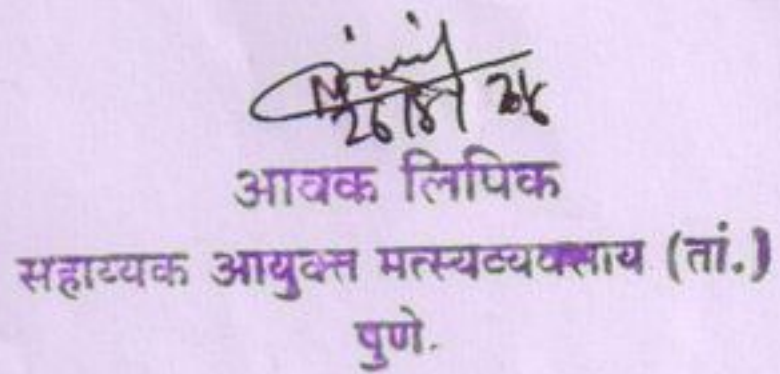 26/8/
आवक लिपिक
सहाय्यक आयुक्त मत्स्यव्यवसाय (तां.)
पुणे.